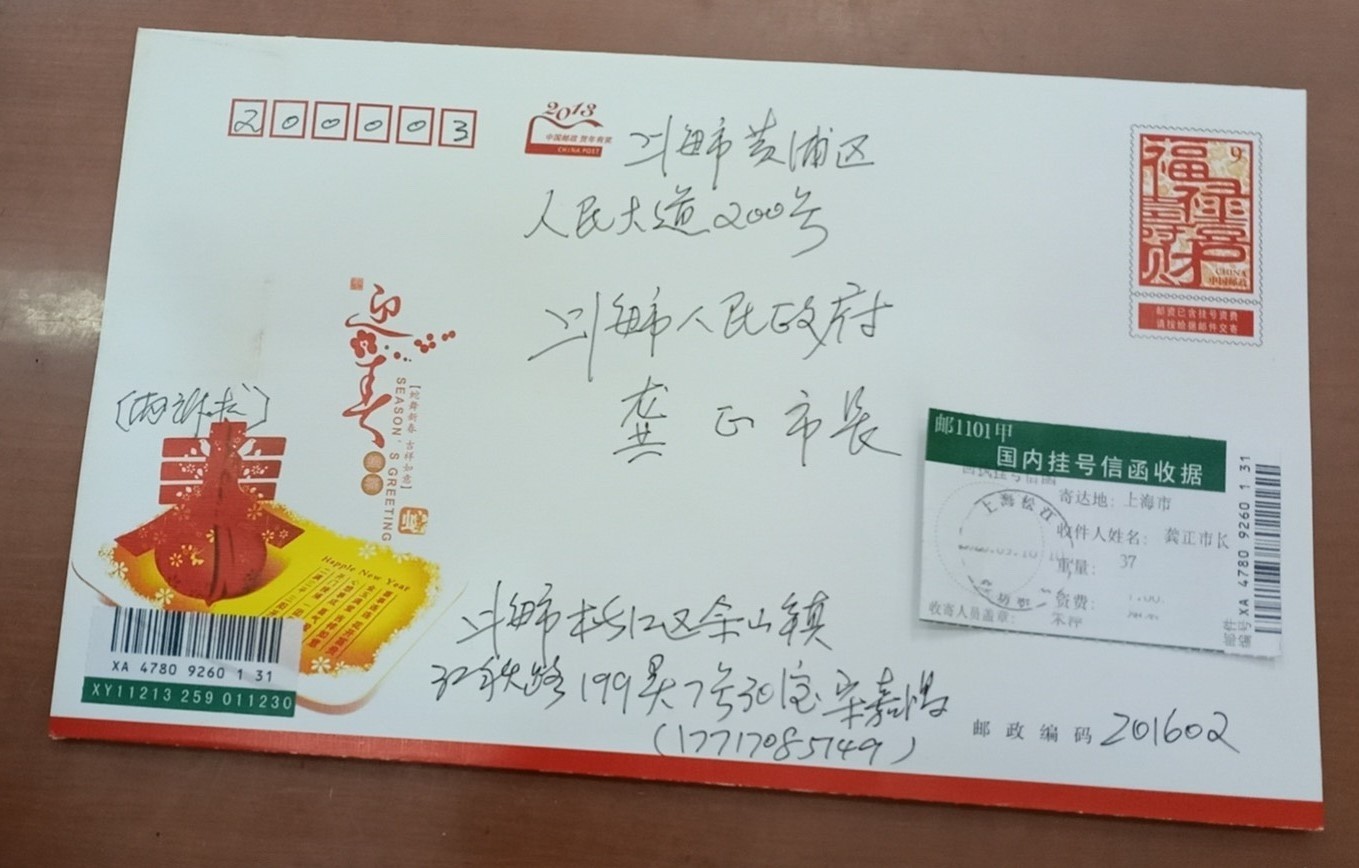 200003
2013
中国邮政 贺年有奖
CHINA POST
上海市黄浦区
人民大道200号
上海市人民政府
龚正市长
福禄寿喜财
9
CHINA
中国邮政
邮资已含挂号资费
请按给据邮件交寄
迎春
【蛇舞新春 吉祥如意】
SEASON'S GREETING
Happle New Year
XA 4780 9260 1 31
XY11213 259 011230
邮1101甲
国内挂号信函收据
寄达地: 上海市
收件人姓名: 龚正市长
重量: 37
资费:
收寄人员盖章:
上海松江
邮件
编号XA 4780 9260 1 31
上海市松江区佘山镇
199弄7号301室宋嘉鸿
(17717085749)
邮政编码 201602